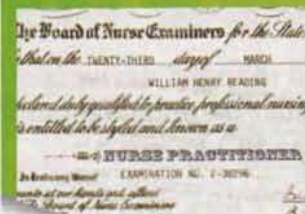 The Board of Nurse Examiners for the State
that on the TWENTY-THIRD day of MARCH
WILLIAM HENRY READING
declared duly qualified to practice professional nursing
is entitled to be styled and known as a
NURSE PRACTITIONER
In Testimony Whereof EXAMINATION NO. 2-30296
our hands and affixed
The Board of Nurse Examiners